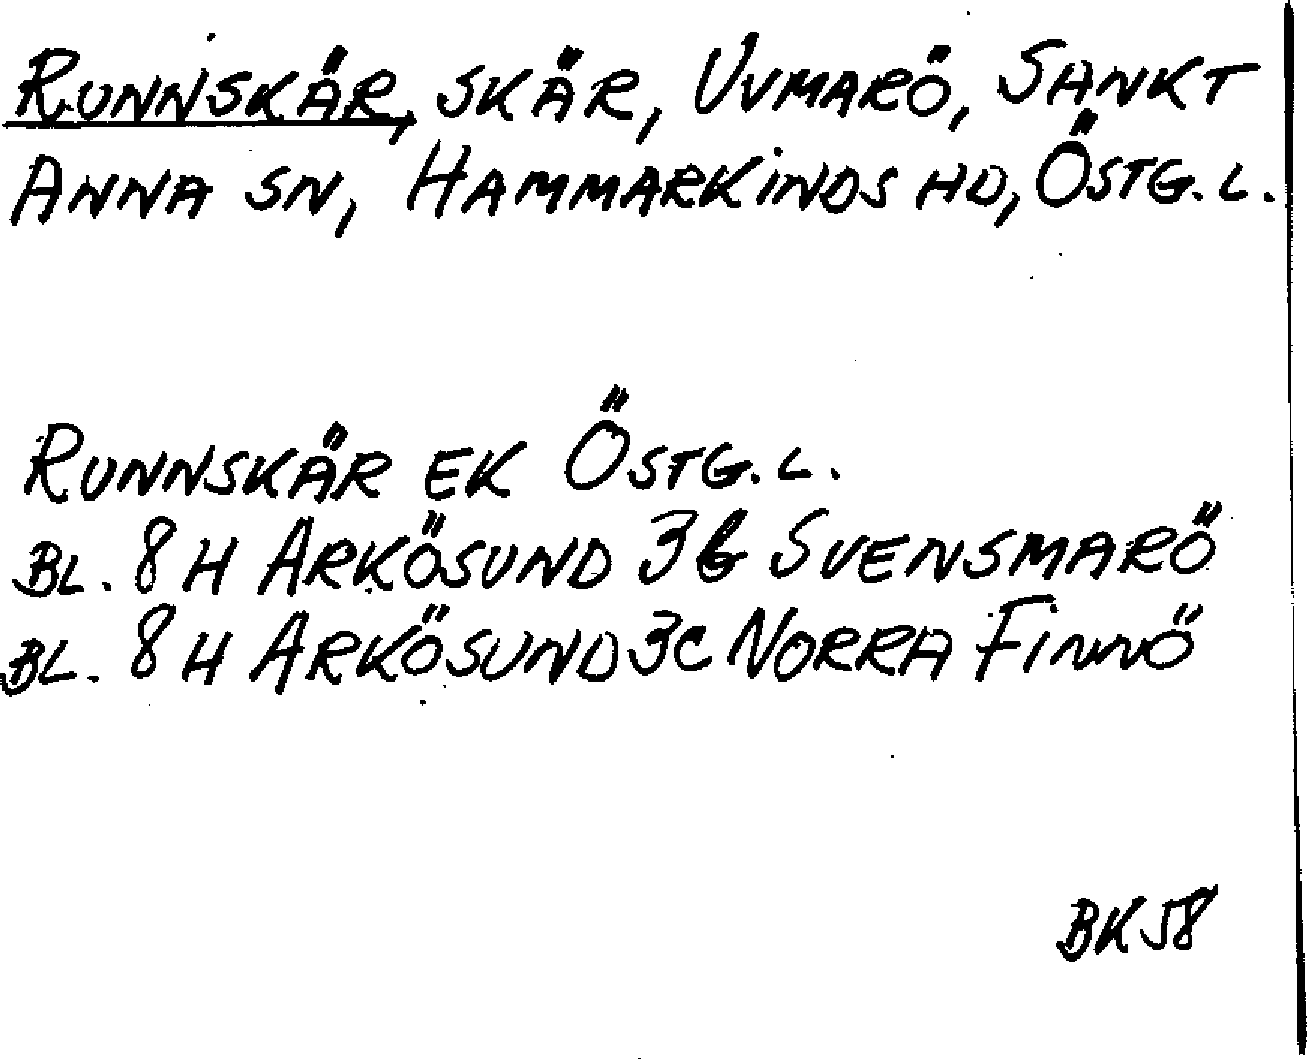 RUNNSKÄR, SKÄR, UVMARÖ, SANKT
ANNA SN, HAMMARKINDS HD, ÖSTG. L.
RUNNSKÄR EK ÖSTG. L.
BL. 8 H ARKÖSUND 3 b SVENSMARÖ
BL. 8 H ARKÖSUND 3C NORRA FINNÖ
BK 58